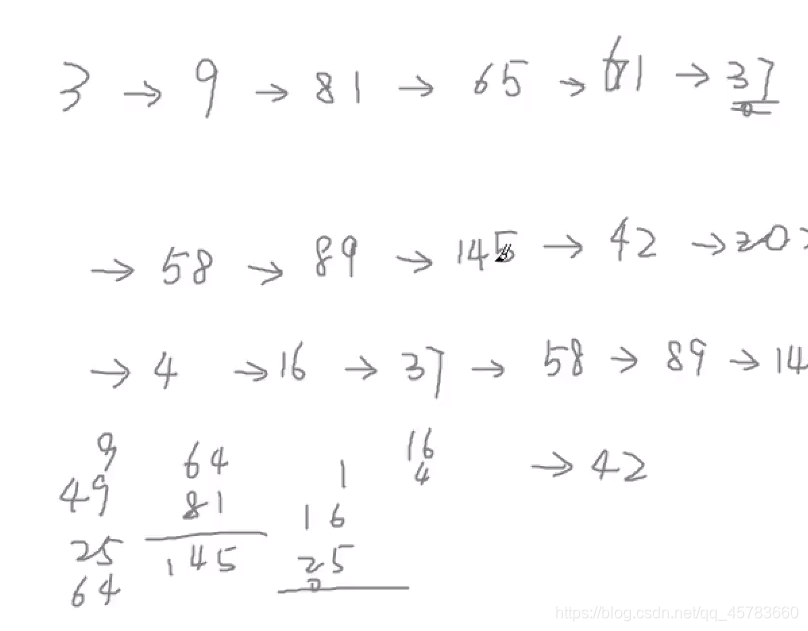 3 → 9 → 81 → 65 → 61 → 37
→ 58 → 89 → 145 → 42 → 20
→ 4 → 16 → 37 → 58 → 89 → 14
→ 42
9
49
25
64
64
81
145
1
16
25
16
4
https://blog.csdn.net/qq_45783660